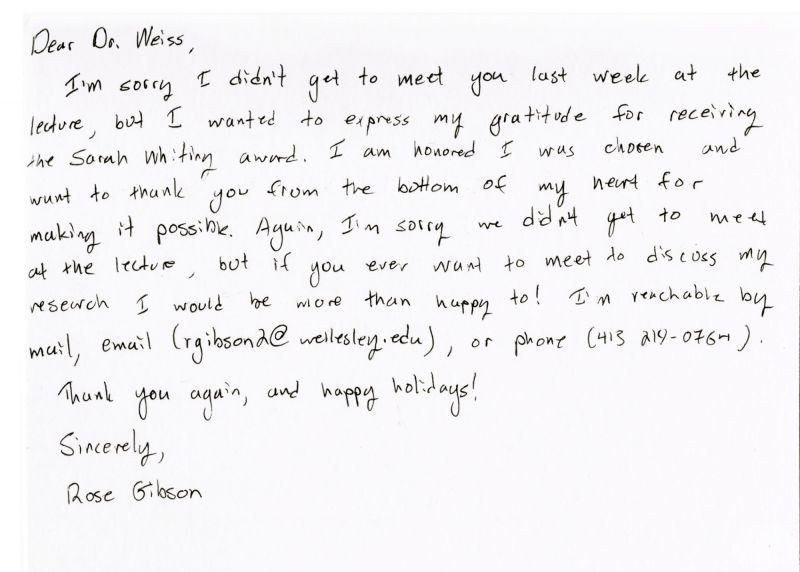 Dear Dr. Weiss,
I'm sorry I didn't get to meet you last week at the
lecture, but I wanted to express my gratitude for receiving
the Sarah Whiting award. I am honored I was chosen and
want to thank you from the bottom of my heart for
making it possible. Again, I'm sorry we didn't get to meet
at the lecture, but if you ever want to meet to discuss my
research I would be more than happy to! I'm reachable by
mail, email (rgibson2@wellesley.edu), or phone (413 219-0764).
Thank you again, and happy holidays!
Sincerely,
Rose Gibson